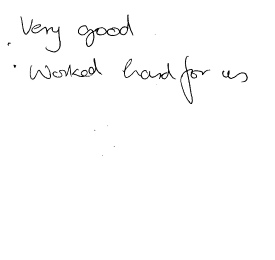 · Very good
· Worked hard for us